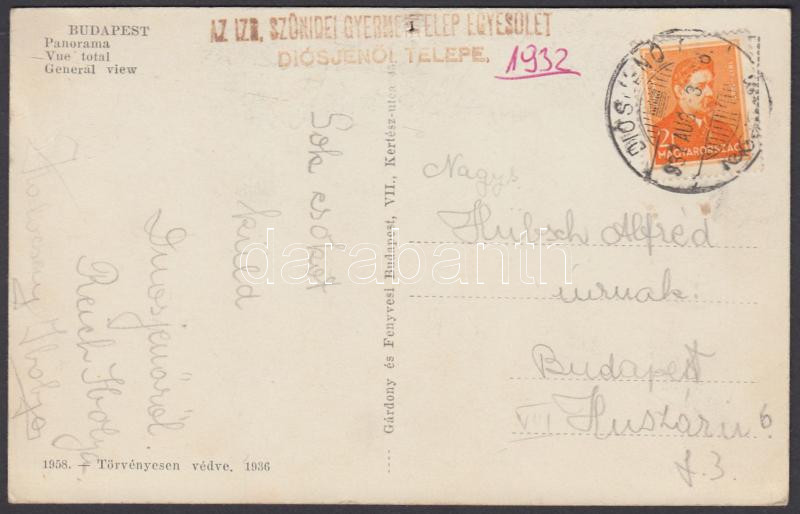 BUDAPEST
Panorama
Vue total
Generál view
AZ IZR. SZÜNIDEI GYERMEKTELEP EGYESÜLET
DIÓSJENŐI TELEPE.
1
1932
DIÓSJENŐ
932 AUG. 3.
2
MAGYARORSZÁG
Sok csókot
küld
Diósjenőről
Reich Ibolya
Ibolya
Gárdony és Fenyvesi Budapest, VII., Kertész-utca
Nagys
Hübsch Alfréd
úrnak
Budapest
VII Huszár u 6
f. 3.
1958. — Törvényesen védve. 1936
darabanth